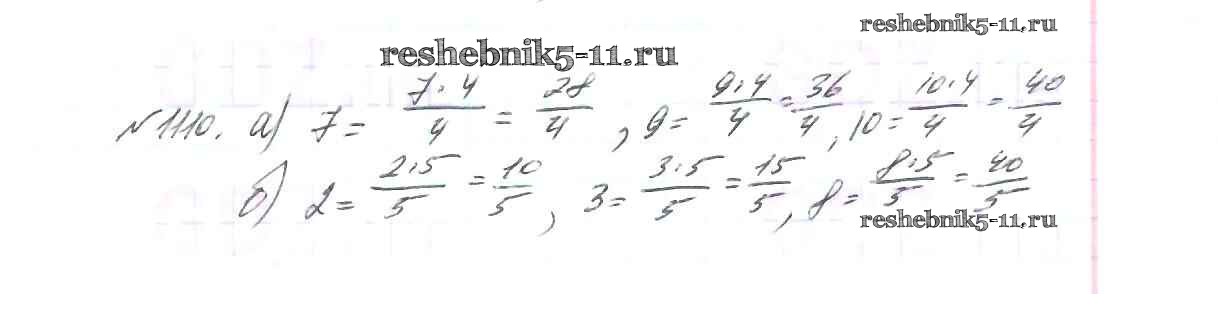 reshebnik5-11.ru
reshebnik5-11.ru
№1110. а) 7 = 7·4/4 = 28/4, 9 = 9·4/4 = 36/4, 10 = 10·4/4 = 40/4
б) 2 = 2·5/5 = 10/5, 3 = 3·5/5 = 15/5, 8 = 8·5/5 = 40/5
reshebnik5-11.ru